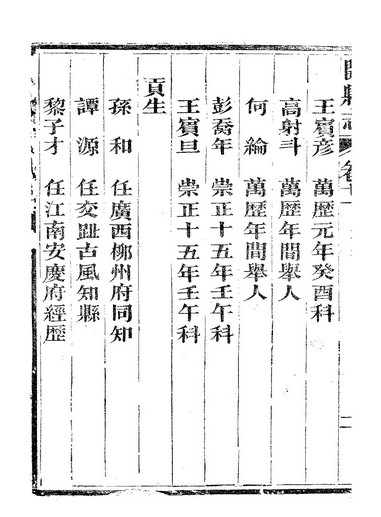 王賓彥 萬歷元年癸酉科
高射斗 萬歷年間舉人
何綸 萬歷年間舉人
彭喬年 崇正十五年壬午科
王賓旦 崇正十五年壬午科
貢生
孫和 任廣西柳州府同知
譚源 任交趾古風知縣
黎子才 任江南安慶府經歷